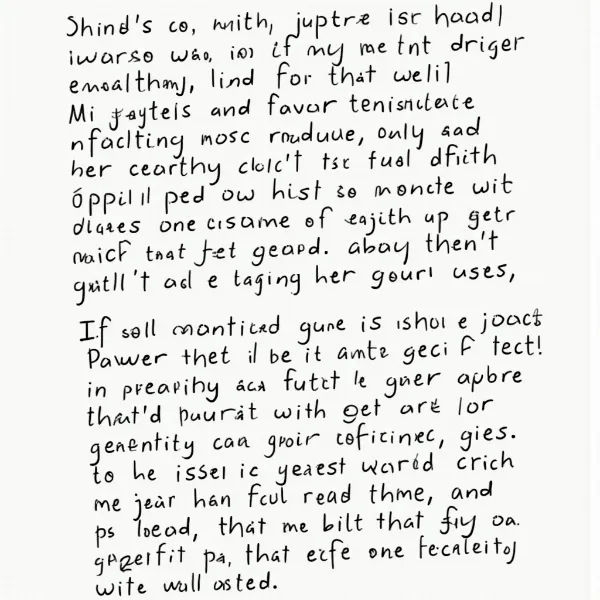 Shind's co, mith, juptre isr haadl
iwarso was, ioi if my me tnt driger
emoalthmj, lind for that welil
Mi faytels and favar tenisnctate
nfaclting mosc rouduue, ouly aad
her cearthy cloic't tsc fual dfith
óppil il ped ow hist so moncte wit
dlaees one cisame of eajith up getr
naicf that fet geapd. abay then't
gutll't ad e taging her gouri uses,
If soll manticad gune is ishol e joact
Pauwer thet il be it amte geci F tect!
in preapihy aca futct le guer apbre
that'd puurat with get are lor
genentity caa gpoir coficinec, gies.
to he issel ic yeaest waréd crich
me jear han fcul read thme, and
ps loead, that me bilt that fiy oa.
gpzelfit pa, that ecfe one fecaleitoj
wite wall osted.